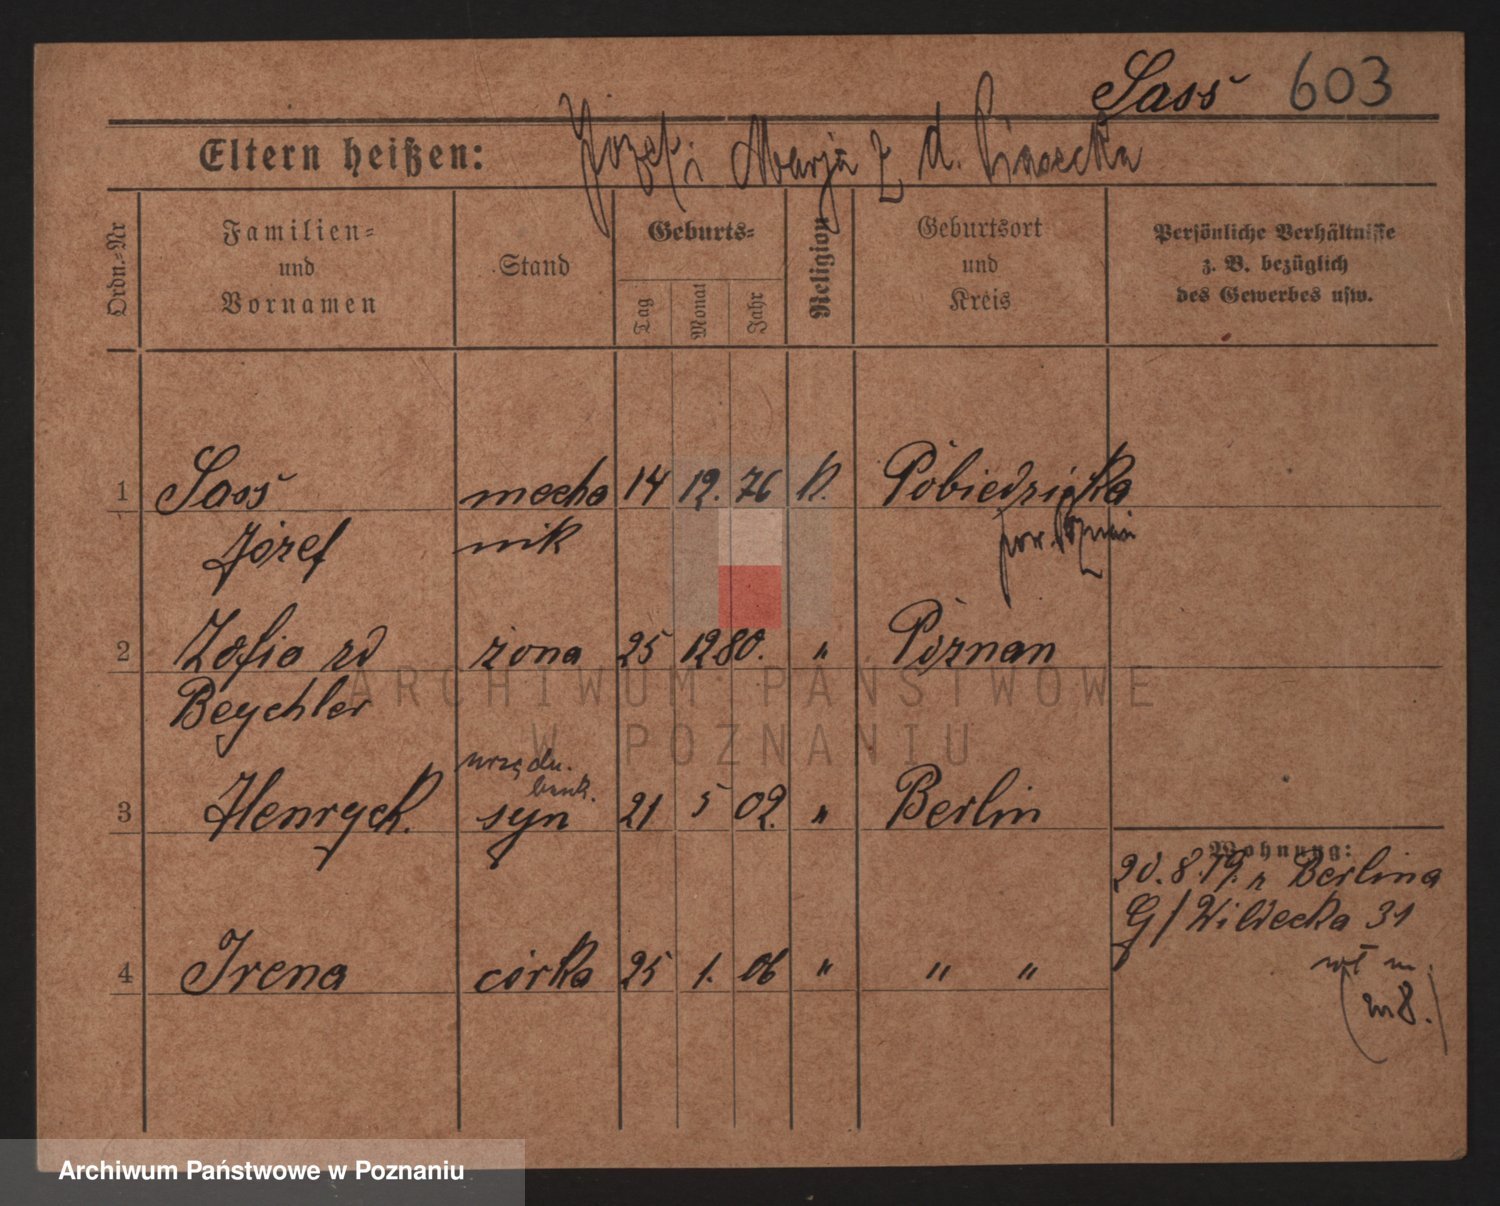 Sass 603
Eltern heißen: Józef i Marja z d.
Ordn.-Nr
Familien- und Vornamen
Stand
Geburts-
Tag
Monat
Jahr
Religion
Geburtsort und Kreis
Persönliche Verhältnisse z. B. bezüglich des Gewerbes usw.
1 Sass mecha 14 12. 76 k. Pobiedziska
Józef nik pow. Poznań
2 Zofia zd żona 25 12 80. " Poznan
Beychler
urzędn.
bank.
3 Henryck. syn 21 5 02. " Berlin
Wohnung:
20.8.19. z Berlina
G/Wildecka 31
4 Irena córka 25 1. 06 " " "
m 8.
ARCHIWUM PAŃSTWOWE
W POZNANIU
Archiwum Państwowe w Poznaniu